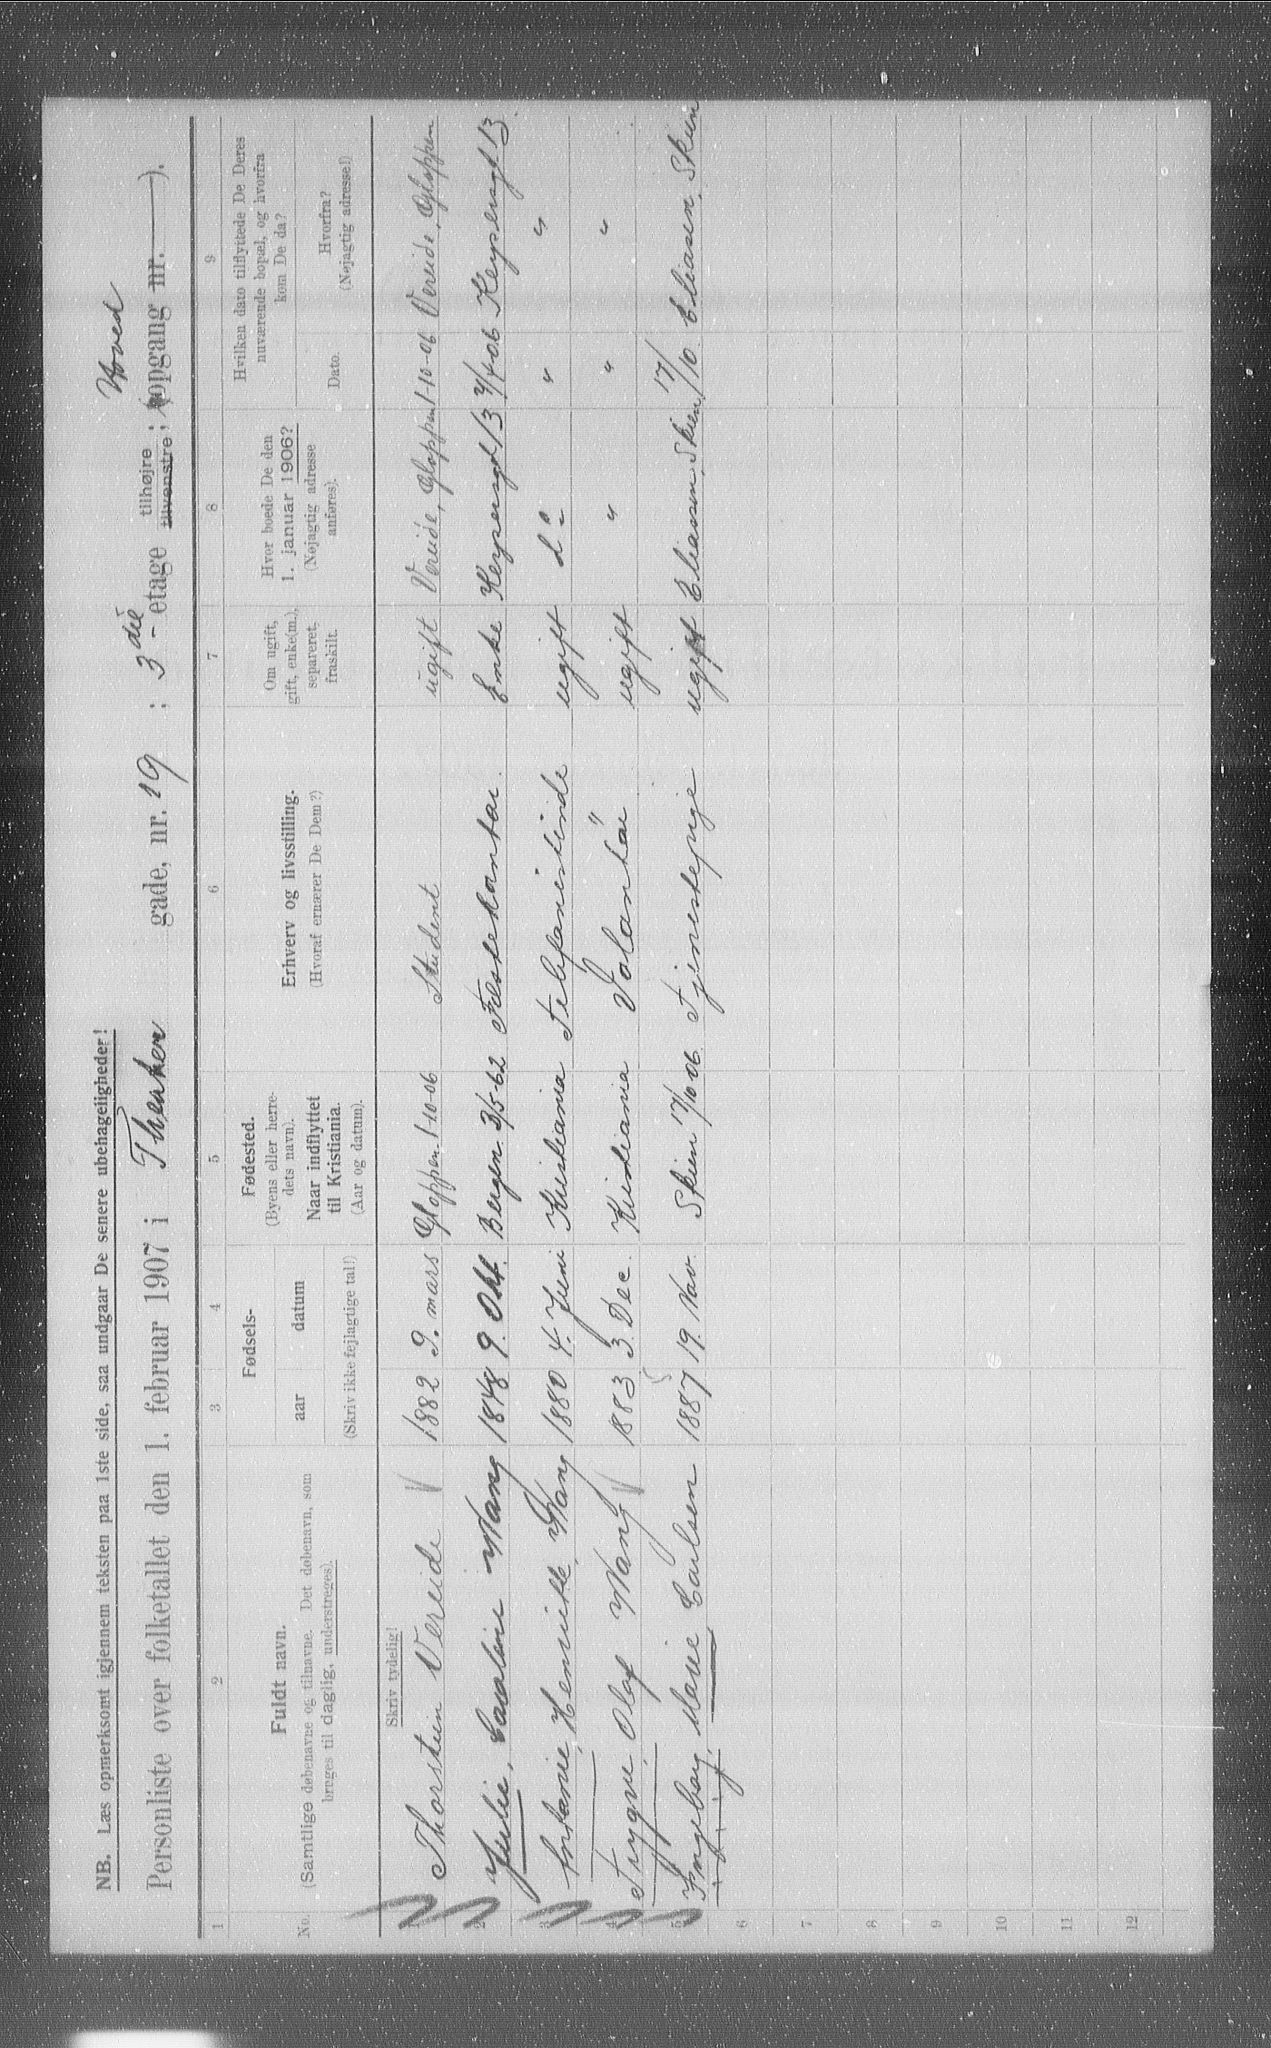 NB. Læs opmerksomt igjennem teksten paa 1ste side, saa undgaar De senere ubehageligheder!
Personliste over folketallet den 1. februar 1907 i Theater gade, nr. 19 ; 3die - etage tilhøjre tilvenstre ; (opgang nr. ).
Hoved
1 2 3 4 5 6 7 8 9
No.
Fuldt navn.
(Samtlige døbenavne og tilnavne. Det døbenavn, som
bruges til daglig, understreges).
Fødsels-
aar datum
(Skriv ikke fejlagtige tal!)
Fødested.
(Byens eller herre-
dets navn).
Naar indflyttet
til Kristiania.
(Aar og datum).
Erhverv og livsstilling.
(Hvoraf ernærer De Dem?)
Om ugift,
gift, enke(m.),
separeret,
fraskilt.
Hvor boede De den
1. januar 1906?
(Nøjagtig adresse
anføres).
Hvilken dato tilflyttede De Deres
nuværende bopæl, og hvorfra
kom De da?
Dato.
Hvorfra?
(Nøjagtig adresse!)
Skriv tydelig!
1 Thorstein Vereide 1882 9. mars Gloppen 1-10-06 Student ugift Vereide, Gloppen 1-10-06 Vereide, Gloppen
2 Julie, Caroline Wang 1848 9. Okt. Bergen 3/5-62 Enke Keysersgd 13 Keysersgt 13.
3 Antonie, Henrikke, Wang 1880 4. Juni Kristiania Telefonistinde ugift do " "
4 Trygve, Olaf Wang 1883 3. Dec. Kristiania Volontør ugift " " "
5 Ingeborg, Marie Carlsen 1887 19. Nov. Skien 17/10 06. Tjenestepige ugift Eliassen, Skien, 17/10 Eliasen, Skien
6
7
8
9
10
11
12